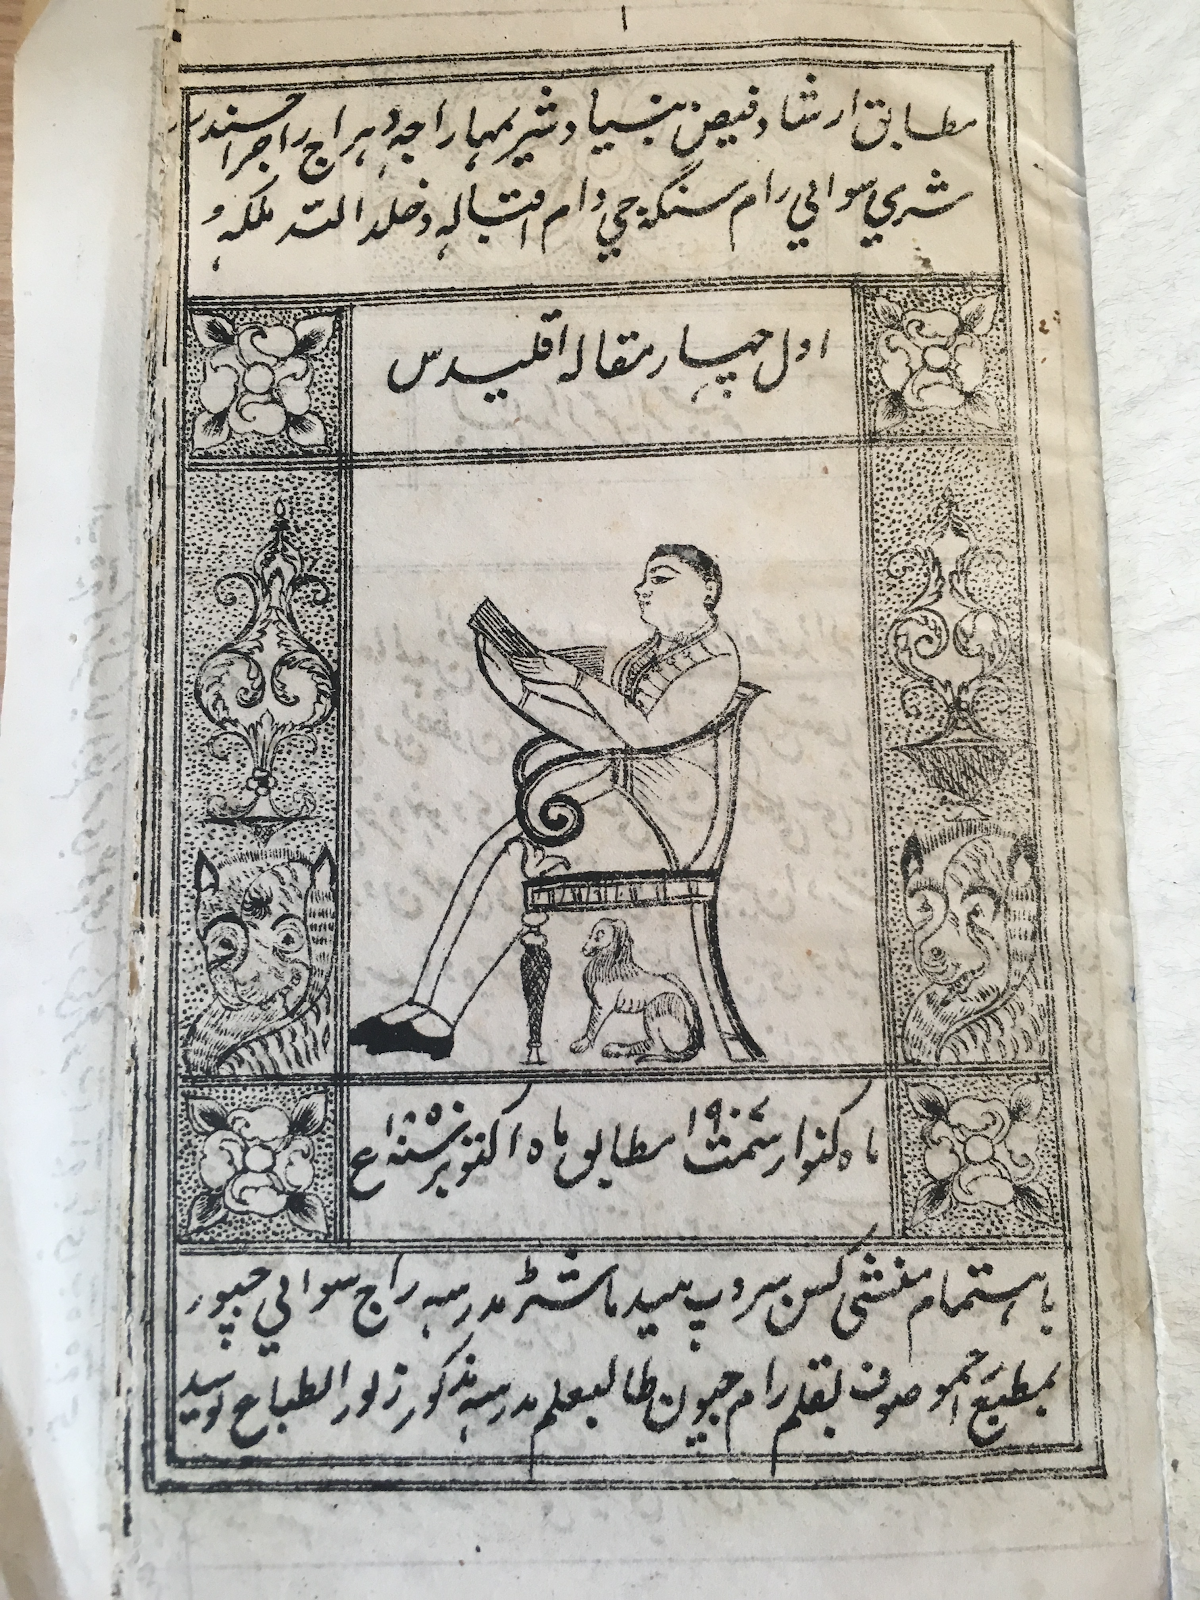 ۱
مطابق ارشاد فیض بنیاد شری مهاراجه دهراج راجراجندر
شري سوائي رام سنگه جي دام اقباله و خلد الله ملکه و
اول چهار مقاله اقلیدس
ماه کنوار سمت ۱۹۰۷ مطابق ماه اکتوبر سنه ۱۸۵۰ ع
باهتمام منشي کسن سروپ هیید ماشٹر مدرسه راج سوائي جیپور
بمطبع احمر موصوف بقلم رام جیون طالبعلم مدرسه مذکور زیور الطباع پوسید